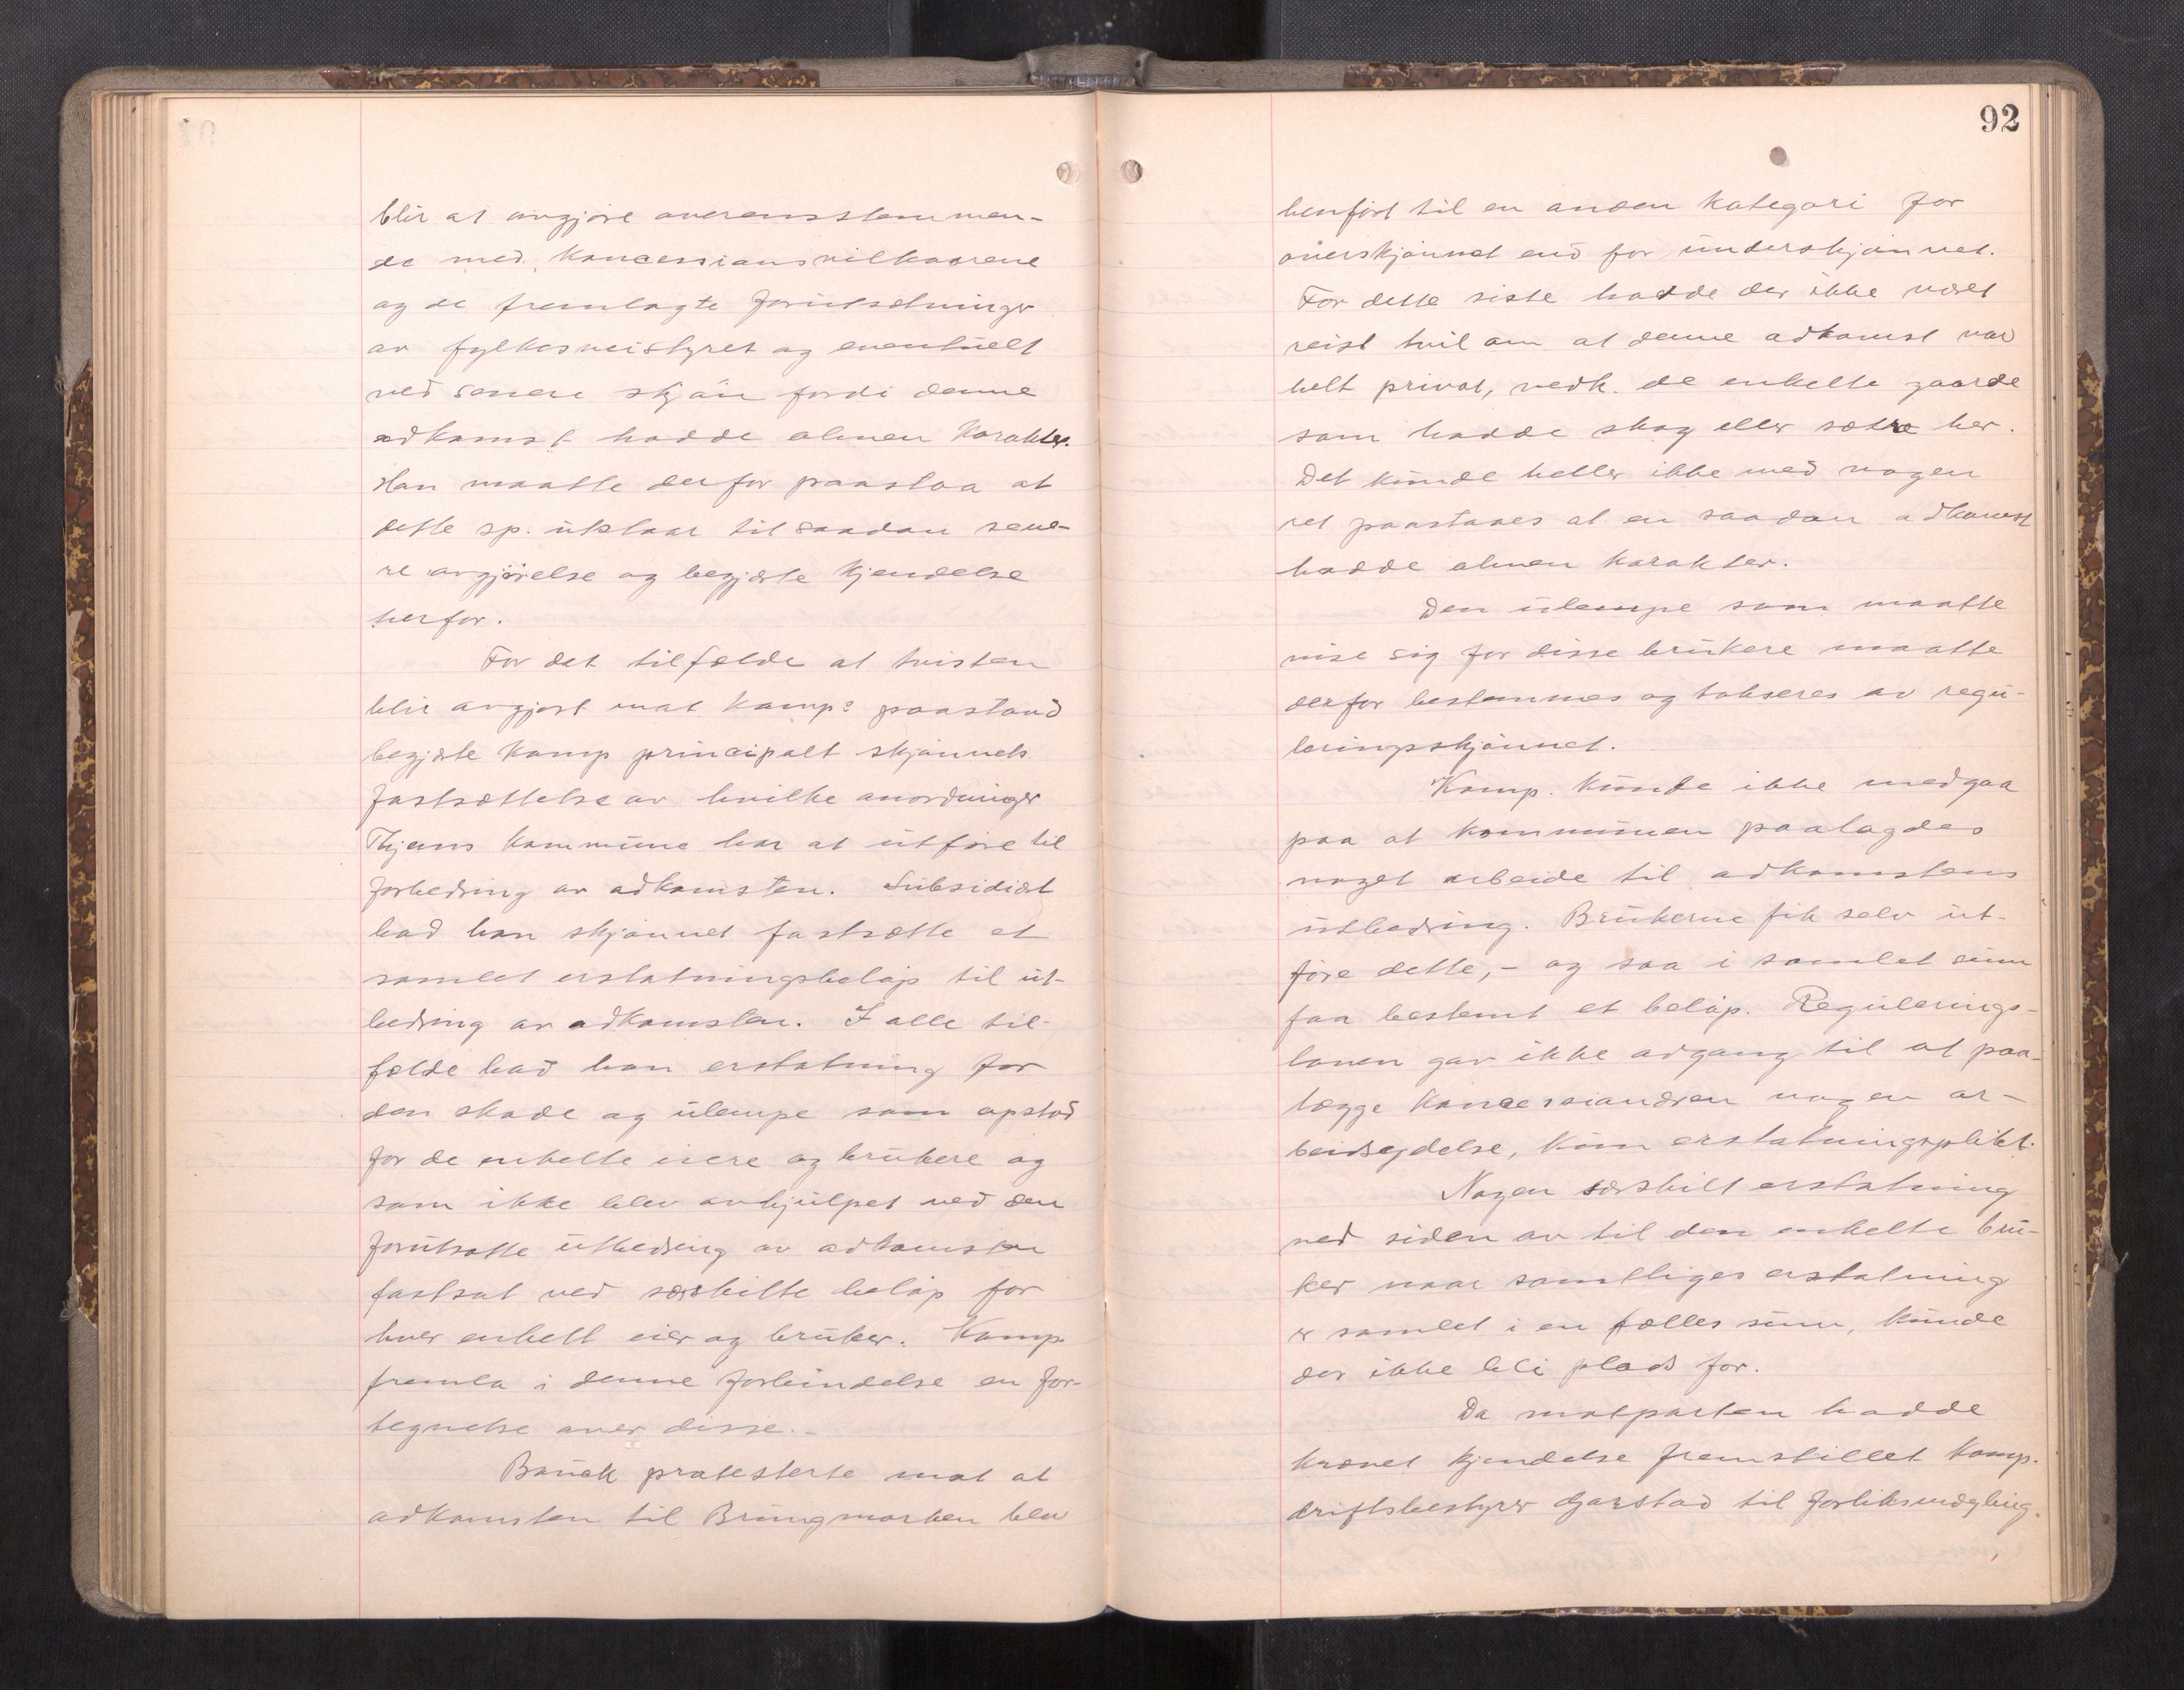 blir at avgjøre overensstemmen-
de med koncessionsvilkaarene
og de fremlagte forutsetninger
av fylkesveistyret og eventuelt
ved senere skjøn fordi denne
adkomst hadde almen karakter.
Han maatte derfor paastaa at
dette sp. utstaar til saadan sene-
re avgjørelse og begjærte kjendelse
herfor.
For det tilfælde at tvisten
blir avgjort mot Kamps paastand
begjærte Kamp principalt skjønnets
fastsættelse av hvilke anordninger
kommune har at utføre til
forbedring av adkomsten. Subsidiært
bad han skjønnet fastsætte et
samlet erstatningsbeløp til ut-
bedring av adkomsten. I alle til-
fælde bad han erstatning for
den skade og ulempe som opstod
for de enkelte eiere og brukere og
som ikke blev avhjulpet ved den
forutsatte utbedring av adkomsten
fastsat ved særskilte beløp for
hver enkelt eier og bruker. Kamp
fremla i denne forbindelse en for-
tegnelse over disse.-
Bauck protesterte mot at
adkomsten til Brungmarken blev
92
henført til en anden kategori for
overskjønnet end for underskjønnet.
For dette siste hadde der ikke været
reist tvil om at denne adkomst var
helt privat, vedk. de enkelte gaarde
som hadde skog eller sætre her.
Det kunde heller ikke med nogen
ret paastaaes at en saadan adkomst
hadde almen karakter.
Den ulempe som maatte
vise sig for disse brukere maatte
derfor bestemmes og takseres av regu-
leringsskjønnet.
Komp. kunde ikke medgaa
paa at kommunen paalagdes
noget arbeide til adkomstens
utbedring. Brukerne fik selv ut-
føre dette,- og saa i samlet sum
faa bestemt et beløp. Regulerings-
loven gav ikke adgang til at paa-
lægge koncessionæren nogen ar-
beidsydelse, kun erstatningsplikt.
Nogen særskilt erstatning
ved siden av til den enkelte bru-
ker naar samtliges erstatning
er samlet i en fælles sum, kunde
der ikke bli plads for.
Da motparten hadde
krævet kjendelse fremstillet komp.
driftsbestyrer Gjarstad til forliksmægling.